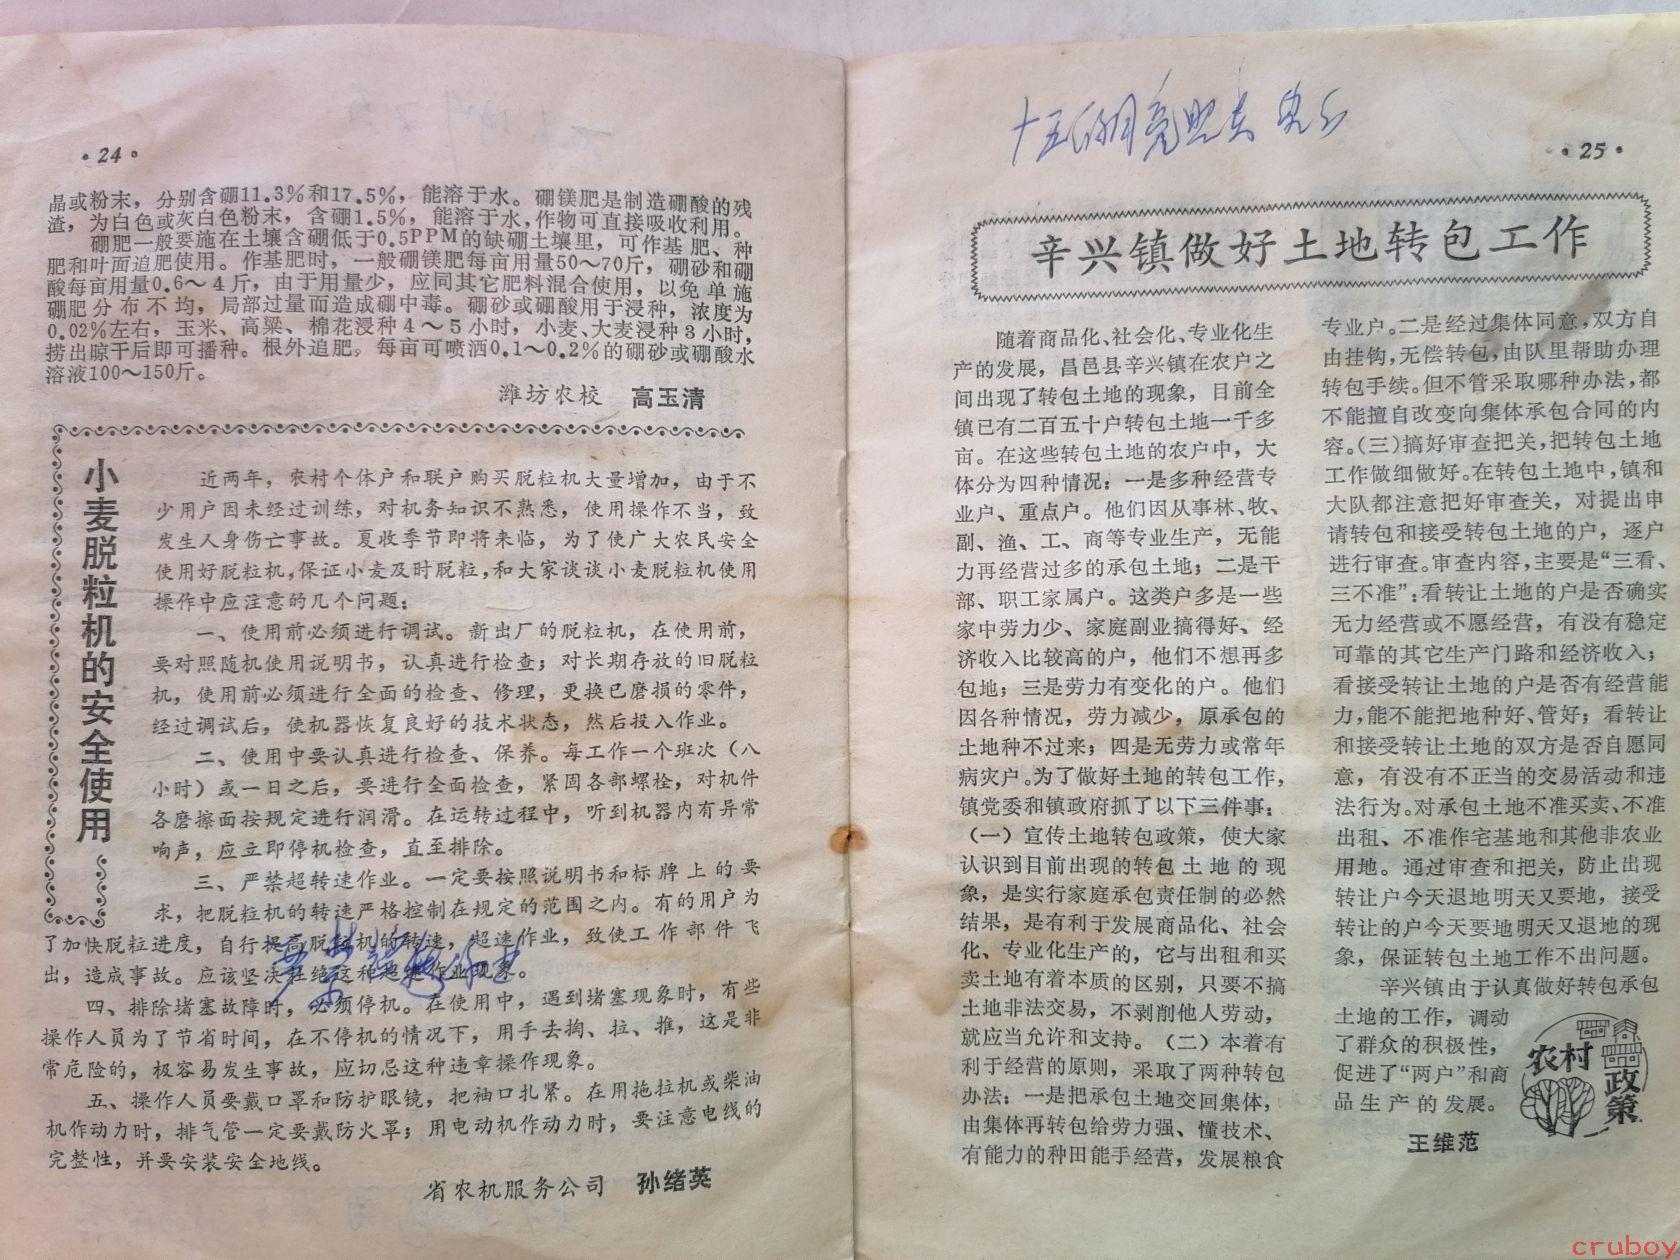 ·24·
晶或粉末，分别含硼11.3%和17.5%，能溶于水。硼镁肥是制造硼酸的残
渣，为白色或灰白色粉末，含硼1.5%，能溶于水，作物可直接吸收利用。
硼肥一般要施在土壤含硼低于0.5PPM的缺硼土壤里，可作基肥、种
肥和叶面追肥使用。作基肥时，一般硼镁肥每亩用量50～70斤，硼砂和硼
酸每亩用量0.6～4斤，由于用量少，应同其它肥料混合使用，以免单施
硼肥分布不均，局部过量而造成硼中毒。硼砂或硼酸用于浸种，浓度为
0.02%左右，玉米、高粱、棉花浸种4～5小时，小麦、大麦浸种3小时，
捞出晾干后即可播种。根外追肥，每亩可喷洒0.1～0.2%的硼砂或硼酸水
溶液100～150斤。
潍坊农校 高玉清
小麦脱粒机的安全使用
近两年，农村个体户和联户购买脱粒机大量增加，由于不
少用户因未经过训练，对机务知识不熟悉，使用操作不当，致
发生人身伤亡事故。夏收季节即将来临，为了使广大农民安全
使用好脱粒机，保证小麦及时脱粒，和大家谈谈小麦脱粒机使用
操作中应注意的几个问题：
一、使用前必须进行调试。新出厂的脱粒机，在使用前，
要对照随机使用说明书，认真进行检查；对长期存放的旧脱粒
机，使用前必须进行全面的检查、修理，更换已磨损的零件，
经过调试后，使机器恢复良好的技术状态，然后投入作业。
二、使用中要认真进行检查、保养。每工作一个班次（八
小时）或一日之后，要进行全面检查，紧固各部螺栓，对机件
各磨擦面按规定进行润滑。在运转过程中，听到机器内有异常
响声，应立即停机检查，直至排除。
三、严禁超转速作业。一定要按照说明书和标牌上的要
求，把脱粒机的转速严格控制在规定的范围之内。有的用户为
了加快脱粒进度，自行提高脱粒机的转速，超速作业，致使工作部件飞
出，造成事故。应该坚决杜绝这种超速作业现象。
四、排除堵塞故障时，必须停机。在使用中，遇到堵塞现象时，有些
操作人员为了节省时间，在不停机的情况下，用手去掏、拉、推，这是非
常危险的，极容易发生事故，应切忌这种违章操作现象。
五、操作人员要戴口罩和防护眼镜，把袖口扎紧。在用拖拉机或柴油
机作动力时，排气管一定要戴防火罩；用电动机作动力时，要注意电线的
完整性，并要安装安全地线。
省农机服务公司 孙绪英
十五的月亮照
·25·
辛兴镇做好土地转包工作
随着商品化、社会化、专业化生
产的发展，昌邑县辛兴镇在农户之
间出现了转包土地的现象，目前全
镇已有二百五十户转包土地一千多
亩。在这些转包土地的农户中，大
体分为四种情况：一是多种经营专
业户、重点户。他们因从事林、牧、
副、渔、工、商等专业生产，无能
力再经营过多的承包土地；二是干
部、职工家属户。这类户多是一些
家中劳力少、家庭副业搞得好、经
济收入比较高的户，他们不想再多
包地；三是劳力有变化的户。他们
因各种情况，劳力减少，原承包的
土地种不过来；四是无劳力或常年
病灾户。为了做好土地的转包工作，
镇党委和镇政府抓了以下三件事：
（一）宣传土地转包政策，使大家
认识到目前出现的转包土地的现
象，是实行家庭承包责任制的必然
结果，是有利于发展商品化、社会
化、专业化生产的，它与出租和买
卖土地有着本质的区别，只要不搞
土地非法交易，不剥削他人劳动，
就应当允许和支持。（二）本着有
利于经营的原则，采取了两种转包
办法：一是把承包土地交回集体，
由集体再转包给劳力强、懂技术、
有能力的种田能手经营，发展粮食
专业户。二是经过集体同意，双方自
由挂钩，无偿转包，由队里帮助办理
转包手续。但不管采取哪种办法，都
不能擅自改变向集体承包合同的内
容。（三）搞好审查把关，把转包土地
工作做细做好。在转包土地中，镇和
大队都注意把好审查关，对提出申
请转包和接受转包土地的户，逐户
进行审查。审查内容，主要是“三看、
三不准”：看转让土地的户是否确实
无力经营或不愿经营，有没有稳定
可靠的其它生产门路和经济收入；
看接受转让土地的户是否有经营能
力，能不能把地种好、管好；看转让
和接受转让土地的双方是否自愿同
意，有没有不正当的交易活动和违
法行为。对承包土地不准买卖、不准
出租、不准作宅基地和其他非农业
用地。通过审查和把关，防止出现
转让户今天退地明天又要地，接受
转让的户今天要地明天又退地的现
象，保证转包土地工作不出问题。
辛兴镇由于认真做好转包承包
土地的工作，调动
了群众的积极性，
促进了“两户”和商
品生产的发展。
王维范
农村
政策
cruboy